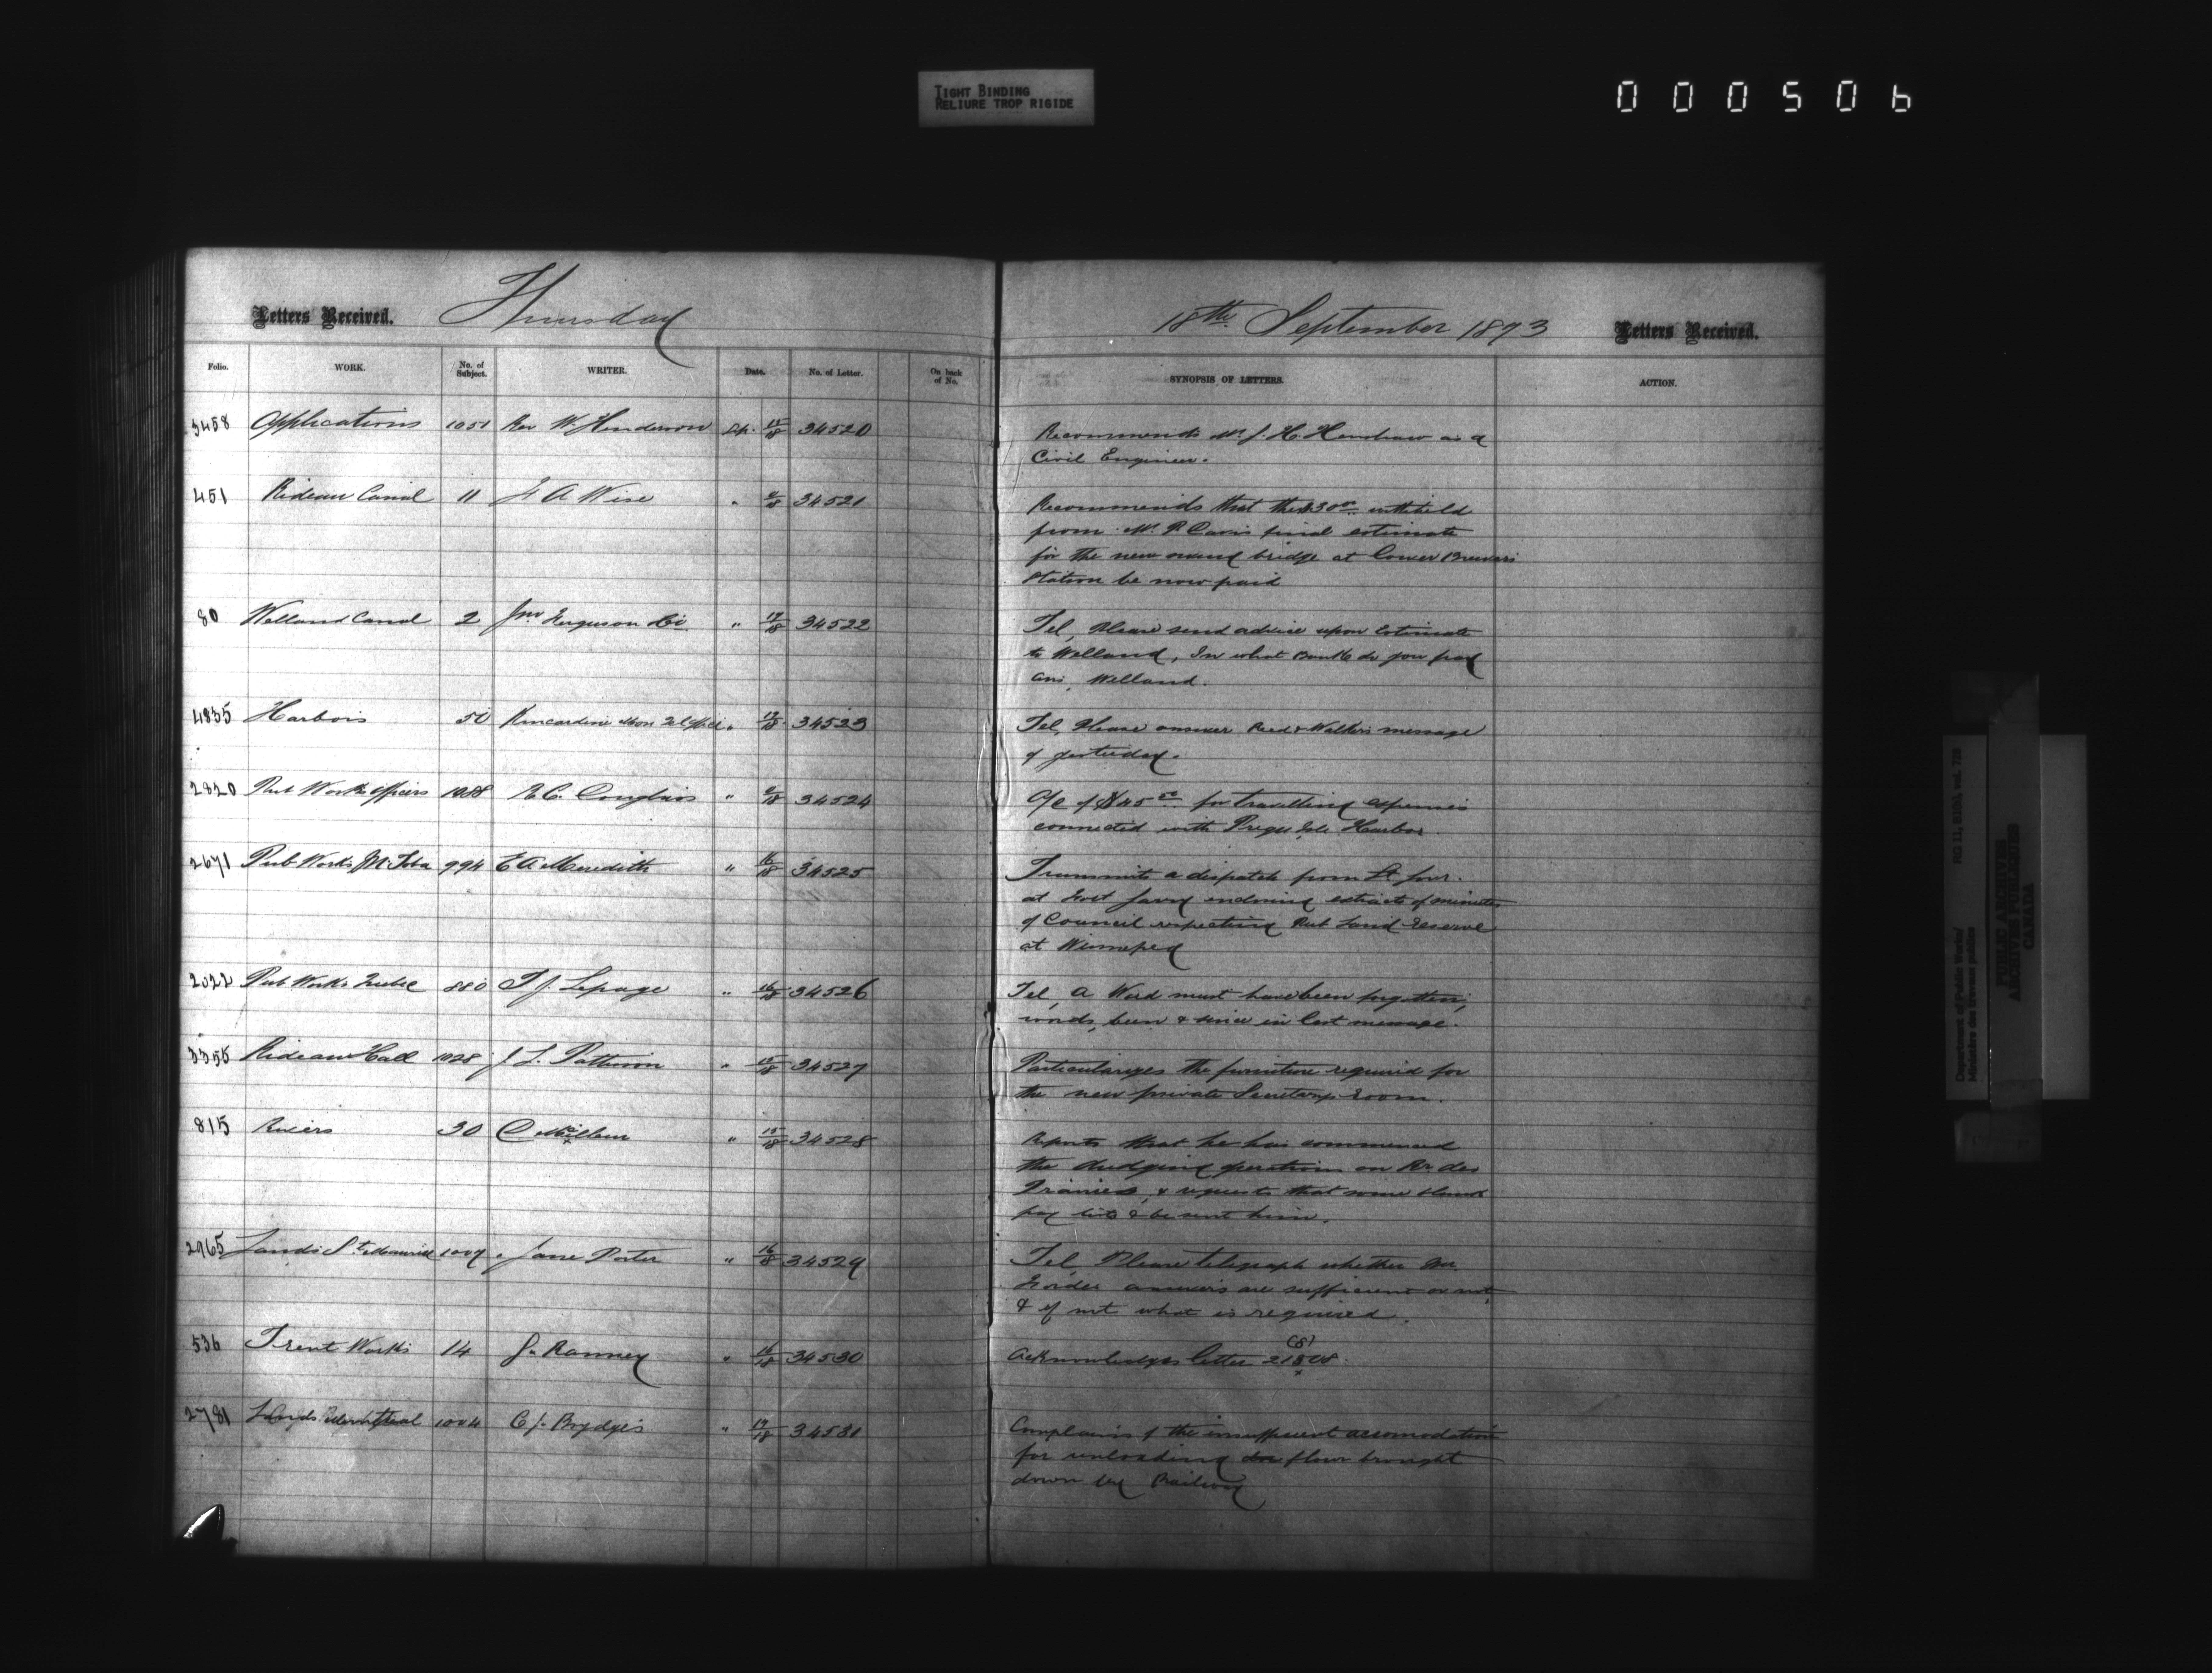 TIGHT BINDING
RELIURE TROP RIGIDE
000506
Letters Received. Thursday
18th September 1873 Letters Received.
Folio. WORK. No. of Subject. WRITER. Date. No. of Letter. On back of No. SYNOPSIS OF LETTERS. ACTION.
3458 Applications 1051 Rev W. Henderson Sep. 15/18 34520 Recommends Mr J. H. Henshaw as a
Civil Engineer.
451 Rideau Canal 11 F A Wise " 9/18 34521 Recommends that the $30 withheld
from Mr. P. final estimate
for the new swing bridge at Lower Brewers
Station be now paid
80 Welland Canal 2 Jno Ferguson " 17/18 34522 Tel, Please send advice upon Estimate
to Welland, In what Bank do you pay
ans, Welland.
4835 Harbors 50 Kincardine Mon Tel Office " 34523 Tel, Please answer Reed & Walkers message
of yesterday.
2820 Pub Works Officers 1088 " 9/18 34524 A/c of $45 for travelling expenses
connected with Presqu Isle Harbor.
2671 Pub Works M'Toba 994 E A Meredith " 16/18 34525 Transmits a dispatch from Lt Gov.
at Fort Garry enclosing extracts of minutes
of Council respecting Pub Land Reserve
at Winnipeg
2022 Pub Works Quebec 880 T J. Lepage " 16/18 34526 Tel, A Word must have been forgotten,
words, been & since in last message.
3355 Rideau Hall 1028 J. L. Pattison " 34527 Particularizes the furniture required for
the new private Secretarys room.
815 Rivers 30 " 15/18 34528 Reports that he has commenced
the dredging operations on Rv. des
Prairies, & requests that some blank
pay lists be sent him.
2965 Lands 1007 Jane Porter " 16/18 34529 Tel, Please telegraph whether
answers are sufficient or not,
& if not what is required.
536 Trent Works 14 Ranney " 16/18 34530 Acknowledges letter
2781 Lands 1004 C J. Brydges " 17/18 34531 Complains of the insufficient accomodation
for unloading flour brought
down by Railway
Department of Public Works/
Ministère des travaux publics
RG 11, B1(b), vol. 728
PUBLIC ARCHIVES
ARCHIVES PUBLIQUES
CANADA